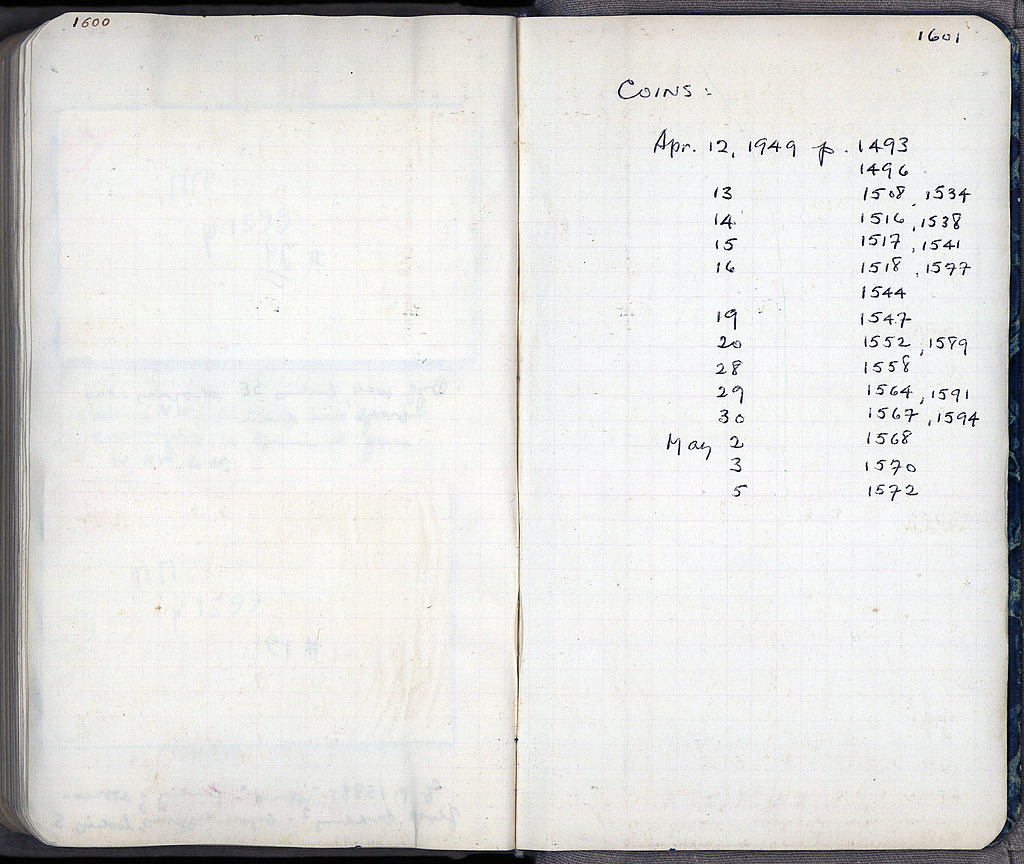 1600
1601
COINS:
Apr. 12, 1949 p. 1493
1496
13 1508, 1534
14 1516, 1538
15 1517, 1541
16 1518, 1577
1544
19 1547
20 1552, 1589
28 1558
29 1564, 1591
30 1567, 1594
May 2 1568
3 1570
5 1572